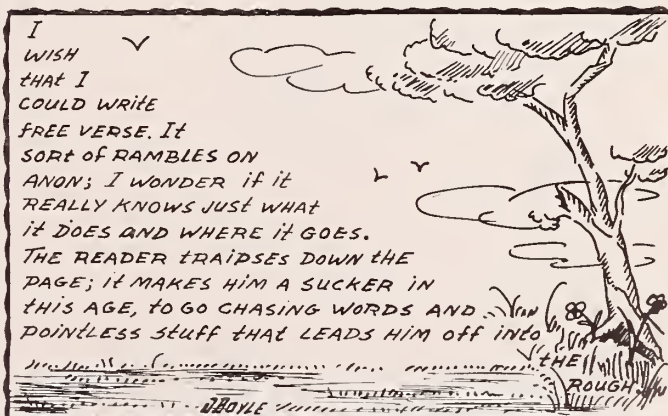 I
WISH
THAT I
COULD WRITE
FREE VERSE. It
SORT OF RAMBLES ON
ANON; I WONDER if it
REALLY KNOWS JUST WHAT
it DOES AND WHERE it GOES.
THE READER TRAIPSES DOWN THE
PAGE; it MAKES HIM A SUCKER IN
THIS AGE, TO GO CHASING WORDS AND
POINTLESS STUFF THAT LEADS HIM OFF INTO
THE
ROUGH
JBOYLE